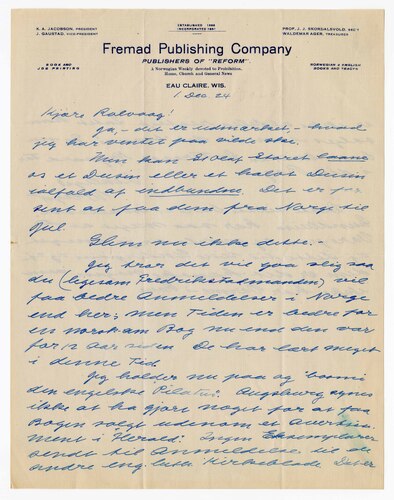 K. A. JACOBSON, PRESIDENT
J. GAUSTAD, VICE-PRESIDENT
ESTABLISHED 1888
INCORPORATED 1891
PROF. J. J. SKORDALSVOLD, SEC'Y
WALDEMAR AGER, TREASURER
Fremad Publishing Company
PUBLISHERS OF "REFORM"
A Norwegian Weekly devoted to Prohibition,
Home, Church and General News
BOOK AND
JOB PRINTING
NORWEGIAN & ENGLISH
BOOKS AND TRACTS
EAU CLAIRE, WIS.
1 Dec 24
Kjære Rolvaag!
Ja, - det er udmærket, - hvad
jeg har ventet paa vilde ske.
Men kan St Olaf Store laane
os et Dusin eller et halvt Dusin
ialfald af indbundne. Det er for
sent at faa dem fra Norge til
Jul.
Glem nu ikke dette. -
Jeg tror det vil gaa slig saa
du (ligesom Fredrikstadmanden) vil
faa bedre Anmeldelser i Norge
end her; men Tiden er bedre for
en norsk am Bog nu end den var
for 12 Aar siden De har lært meget
i denne Tid.
Jeg holder nu paa og "boomi
den engelske Pilatus". Augsburg synes
ikke at ha gjort noget for at faa
Bogen solgt udenom et Avertise-
ment i Herald. Ingen Eksemplarer
sendt til Anmeldelse ut de
andre eng. luth Kirkeblade. Det er